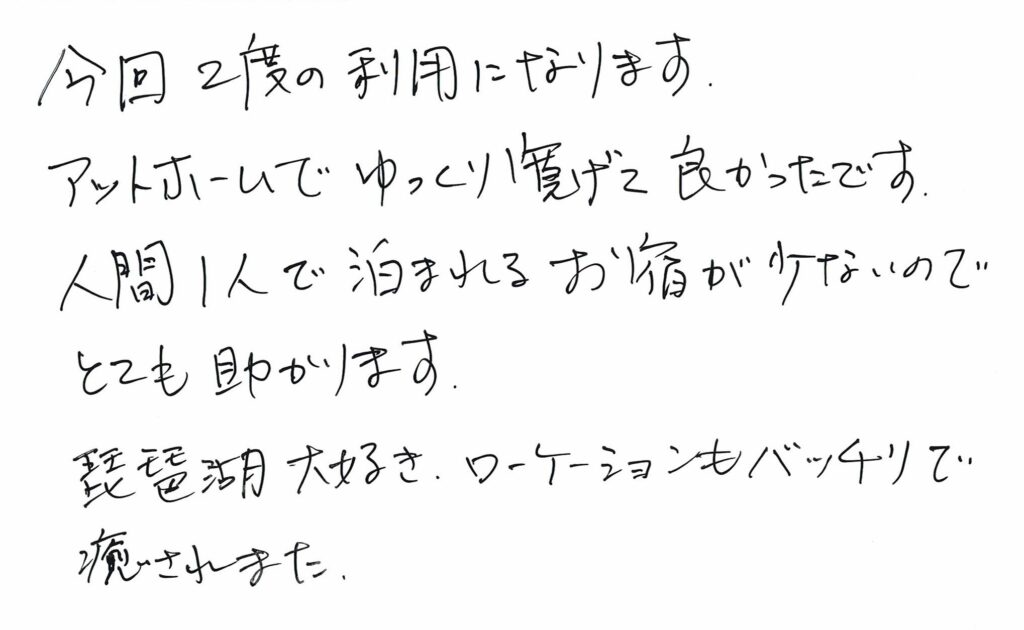 今回 2度の利用になります.
アットホームで ゆっくり寛げて 良かったです.
人間1人で 泊まれる お宿が少ないので
とても 助かります.
琵琶湖 大好き. ローケーションもバッチリで
癒されまた.